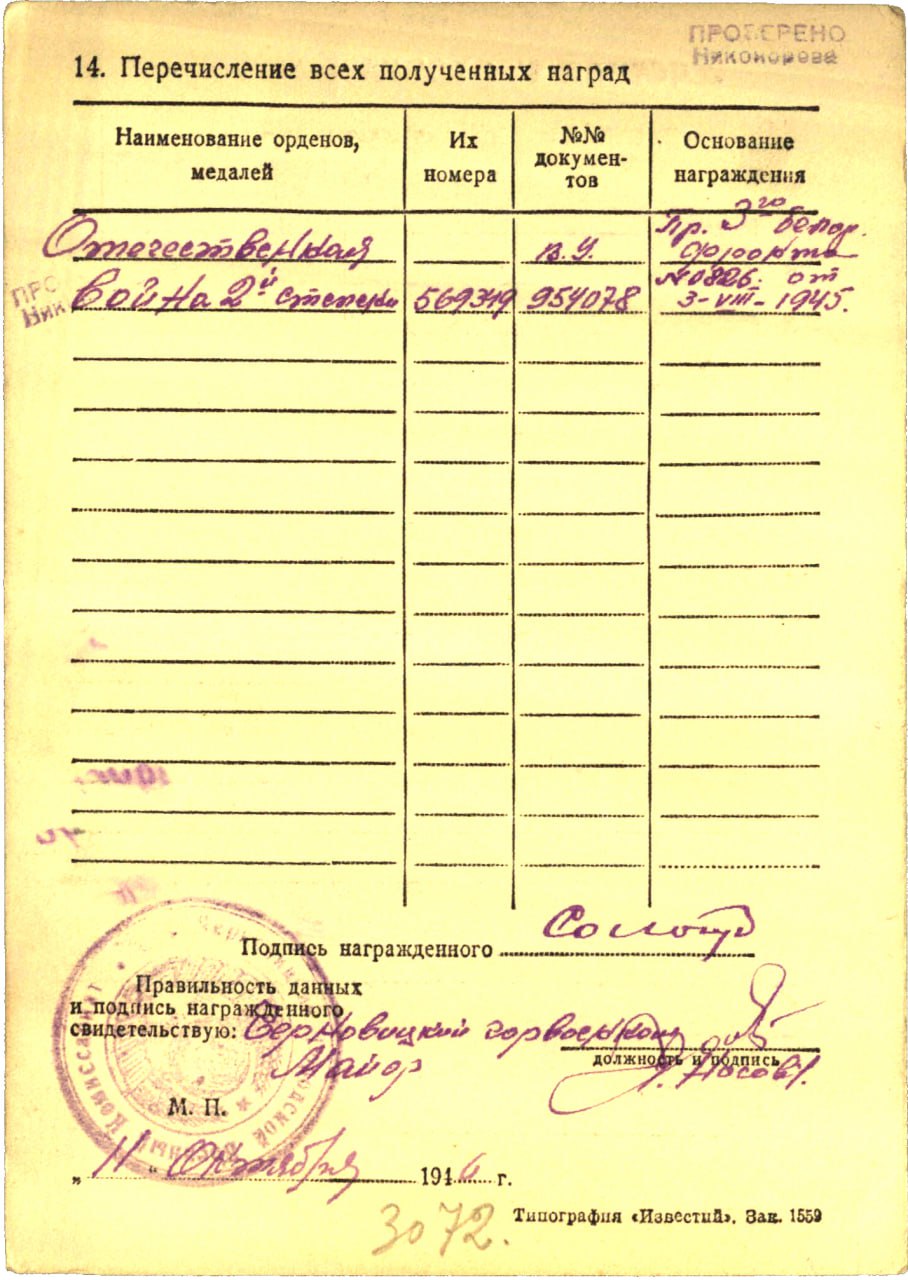 ПРОВЕРЕНО
Никонорова
14. Перечисление всех полученных наград
Наименование орденов, медалей
Их номера
№№ документов
Основание награждения
Отечественная
в. у.
Пр. 3го Белор. фронта
ПРО
Ник
война 2й степени
569319
954078
№ 0826 от 3-VIII-1945.
Подпись награжденного
Правильность данных
и подпись награжденного
свидетельствую: Черновицкий горвоенком
Майор
должность и подпись
М. П.
Военный Комиссариат
„ 11 “ Октября 1946 г.
3072.
Типография «Известий». Зак. 1559